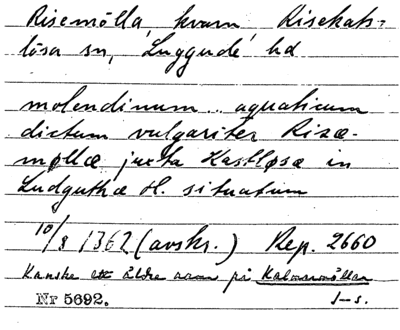 Risemölla, kvarn Risekat-
lösa sn, Luggude hd
molendinum .. aquaticum
dictum vulgariter Rizæ-
møllæ juxta Kastløsæ in
Ludguthæ H. situatum
10/8 1362 (avskr.) Rep. 2660
Kanske ett äldre namn på Kalvamöllan
Nr 5692. J-s.